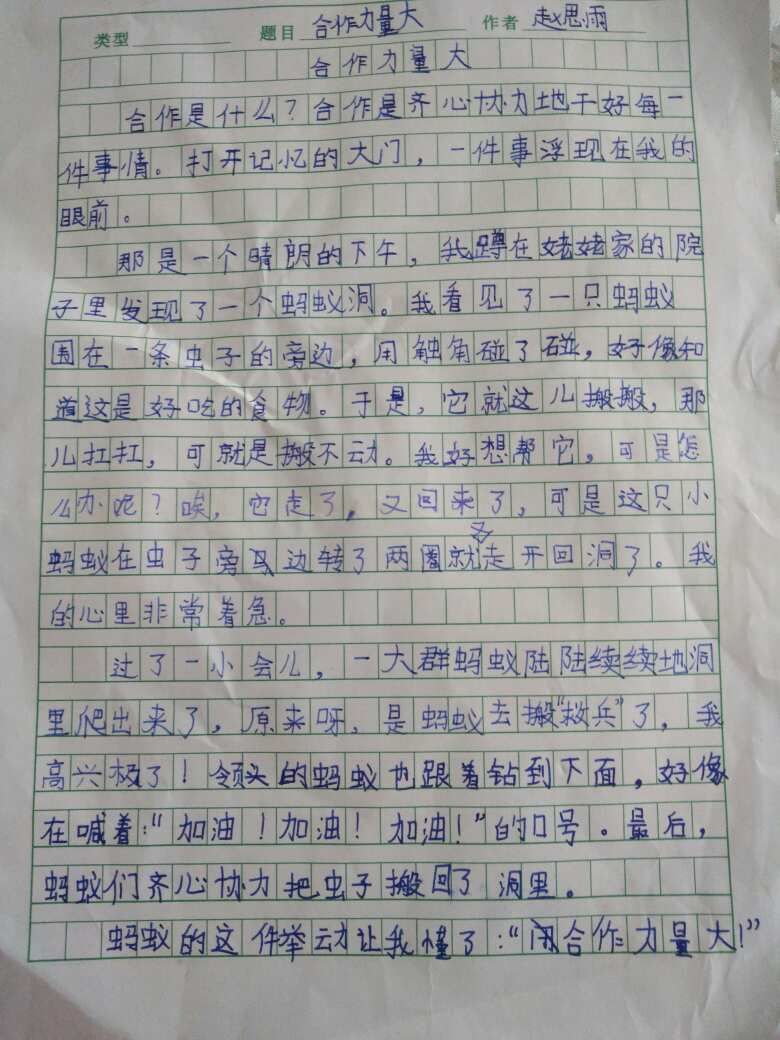 类型 题目 合作力量大 作者 赵思雨
合作力量大
合作是什么？合作是齐心协力地干好每一
件事情。打开记忆的大门，一件事浮现在我的
眼前。
那是一个晴朗的下午，我蹲在姥姥家的院
子里发现了一个蚂蚁洞。我看见了一只蚂蚁
围在一条虫子的旁边，用触角碰了碰，好像知
道这是好吃的食物。于是，它就这儿搬搬，那
儿扛扛，可就是搬不动。我好想帮它，可是怎
么办呢？唉，它走了，又回来了，可是这只小
蚂蚁在虫子旁边转了两圈就又走开回洞了。我
的心里非常着急。
过了一小会儿，一大群蚂蚁陆陆续续地洞
里爬出来了，原来呀，是蚂蚁去搬“救兵”了，我
高兴极了！领头的蚂蚁也跟着钻到下面，好像
在喊着：“加油！加油！加油！”的口号。最后，
蚂蚁们齐心协力把虫子搬回了洞里。
蚂蚁的这件举动让我懂了：“合作力量大！”